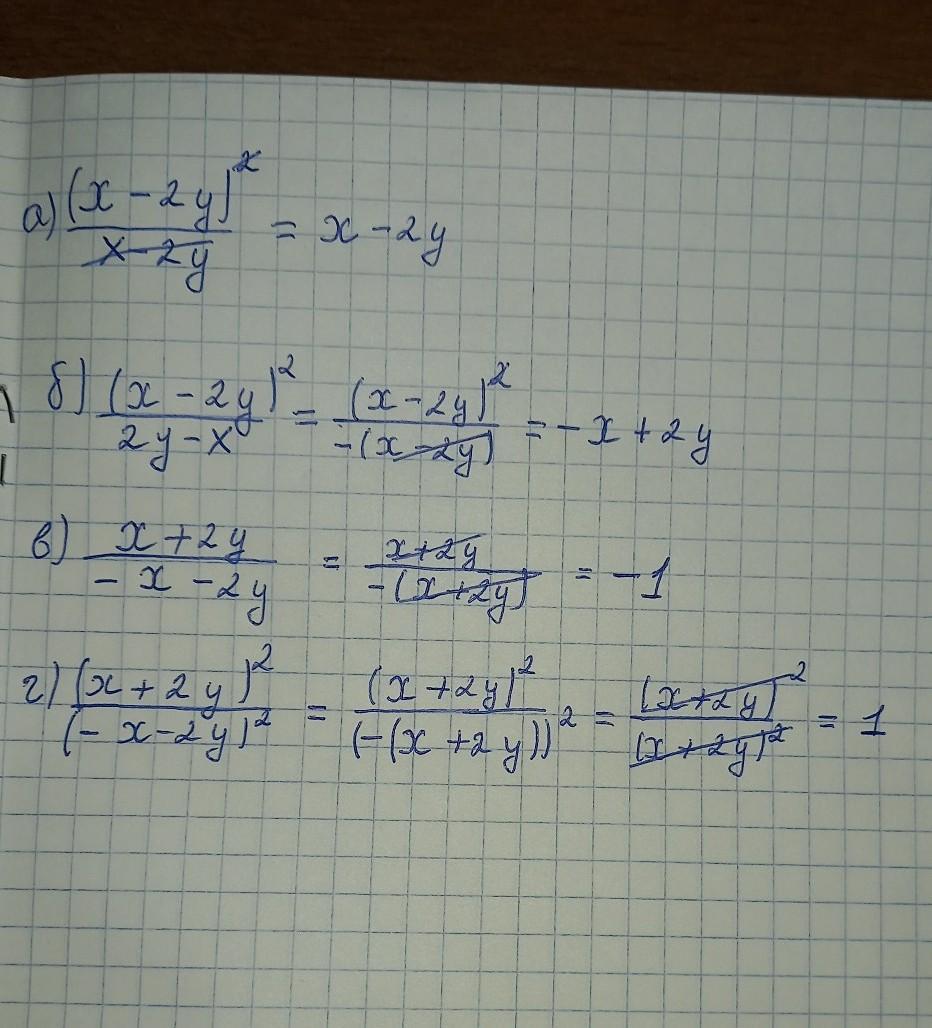 а) (x - 2y)² / x - 2y = x - 2y
б) (x - 2y)² / 2y - x = (x - 2y)² / -(x - 2y) = - x + 2y
в) x + 2y / - x - 2y = x + 2y / -(x + 2y) = - 1
г) (x + 2y)² / (- x - 2y)² = (x + 2y)² / (-(x + 2y))² = (x + 2y)² / (x + 2y)² = 1